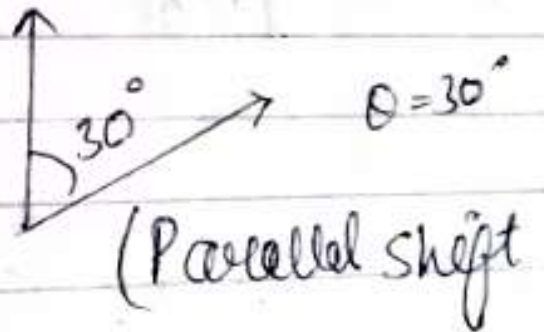 30°
θ = 30°
(Parallel shift